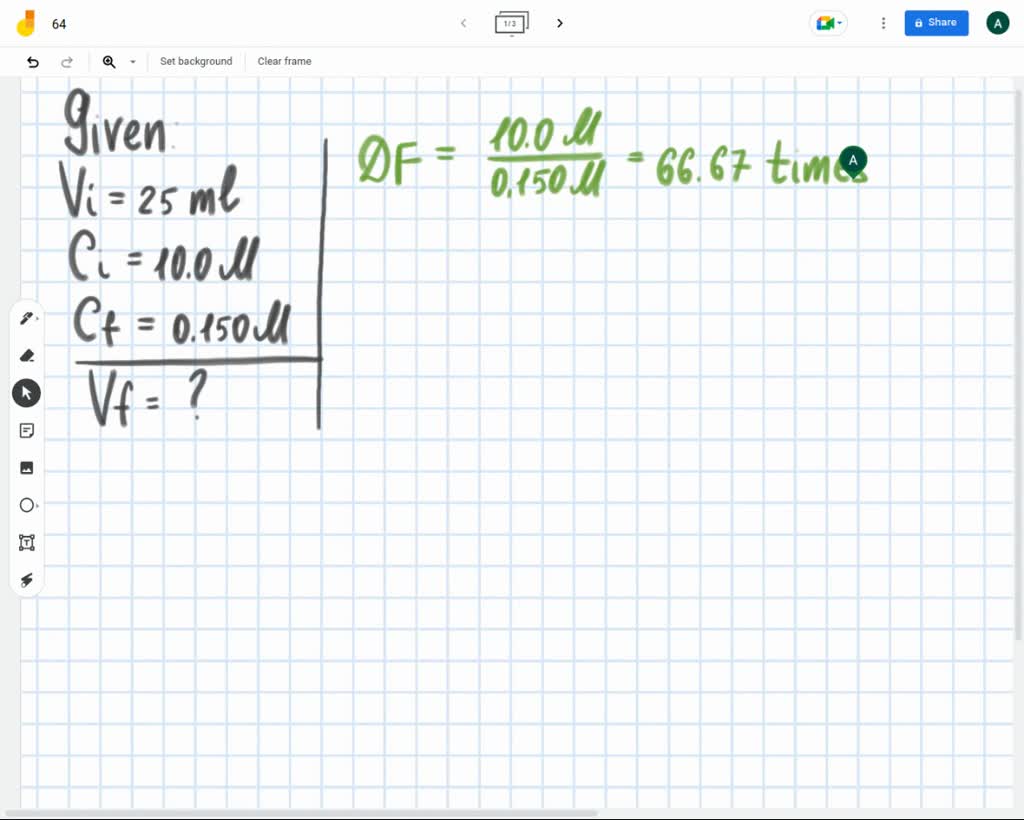 64
1/3
Share
A
Set background
Clear frame
Given:
Vi = 25 ml
Ci = 10.0 M
Cf = 0.150 M
Vf = ?
DF = 10.0 M / 0.150 M = 66.67 times
A